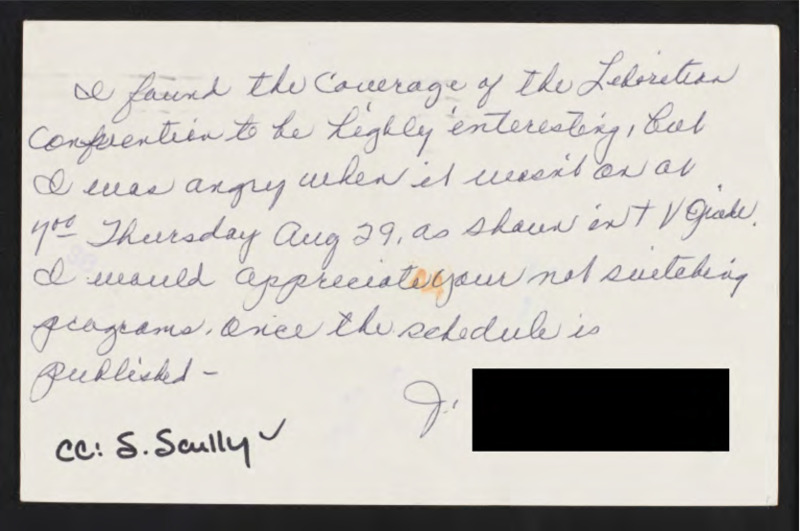 I found the Coverage of the Liberation
Convention to be highly interesting, but
I was angry when it wasn't on at
7:00 Thursday Aug 29, as shown in TV Guide.
I would appreciate your not switching
programs, once the schedule is
published –
J.
cc: S. Scully ✓